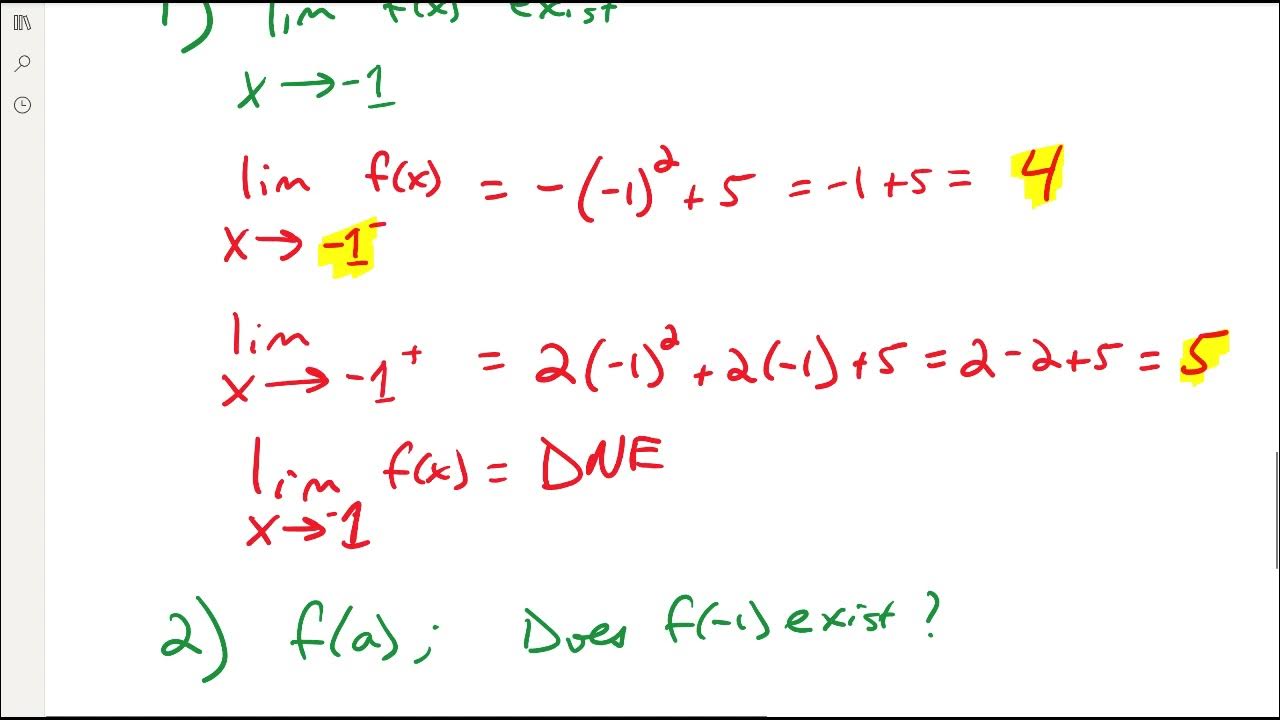 1) lim f(x) exist
x → -1
lim f(x) = -(-1)² + 5 = -1 + 5 = 4
x → -1⁻
lim
x → -1⁺ = 2(-1)² + 2(-1) + 5 = 2 - 2 + 5 = 5
lim f(x) = DNE
x → -1
2) f(a); Does f(-1) exist?